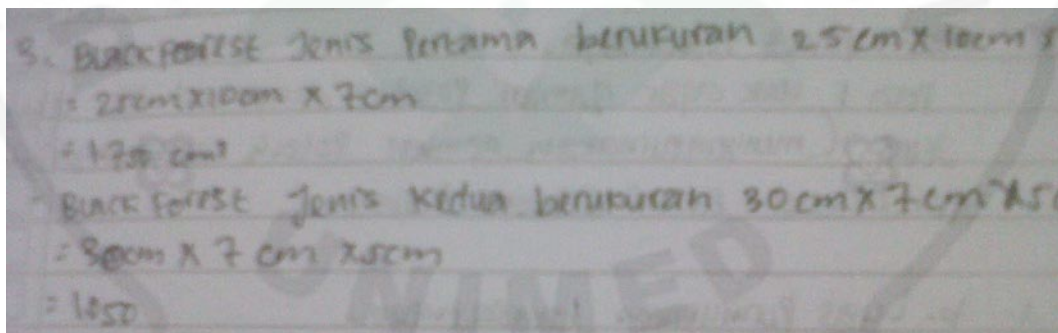 3. Blackforest Jenis Pertama berukuran 25 cm x 10cm x
= 25cm x 10cm x 7cm
= 1750 cm³
Black Forest Jenis Kedua berukuran 30 cm x 7 cm x 5
= 30cm x 7 cm x 5cm
= 1050
UNIMED